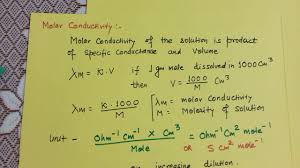 Molar Conductivity :-
Molar Conductivity of the solution is product
of Specific Conductance and Volume
λm = K.V if 1 gm mole dissolved in 1000 Cm³
then V = 1000/M Cm³
λm = K.1000/M [λm = molar conductivity
M = Molarity of solution
Unit - Ohm⁻¹ Cm⁻¹ × Cm³/Mole = Ohm⁻¹ Cm² mole⁻¹
OR S Cm² mole⁻¹
increasing dilution